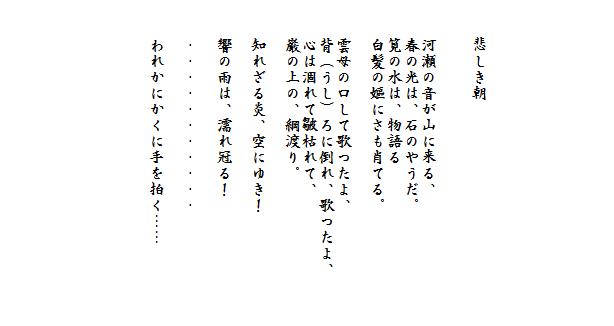 悲しき朝
河瀬の音が山に来る、
春の光は、石のやうだ。
筧の水は、物語る
白髪の嫗にさも肖てる。
雲母の口して歌つたよ、
背（うし）ろに倒れ、歌つたよ、
心は涸れて皺枯れて、
巌の上の、綱渡り。
知れざる炎、空にゆき！
響の雨は、濡れ冠る！
・・・・・・・・・・・
われかにかくに手を拍く……